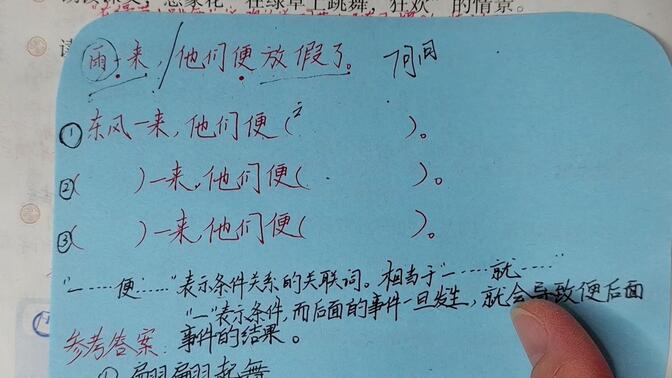 想象花"在绿草上跳舞,狂欢"的情景。
雨一来,他们便放假了。
①东风一来,他们便( )。
②( )一来,他们便( )。
③( )一来,他们便( )。
"一……便……"表示条件关系的关联词。相当于"一……就……"
"一"表示条件,而后面的事件一旦发生,就会导致便后面
参考答案: 事件的结果。
① 翩翩起舞